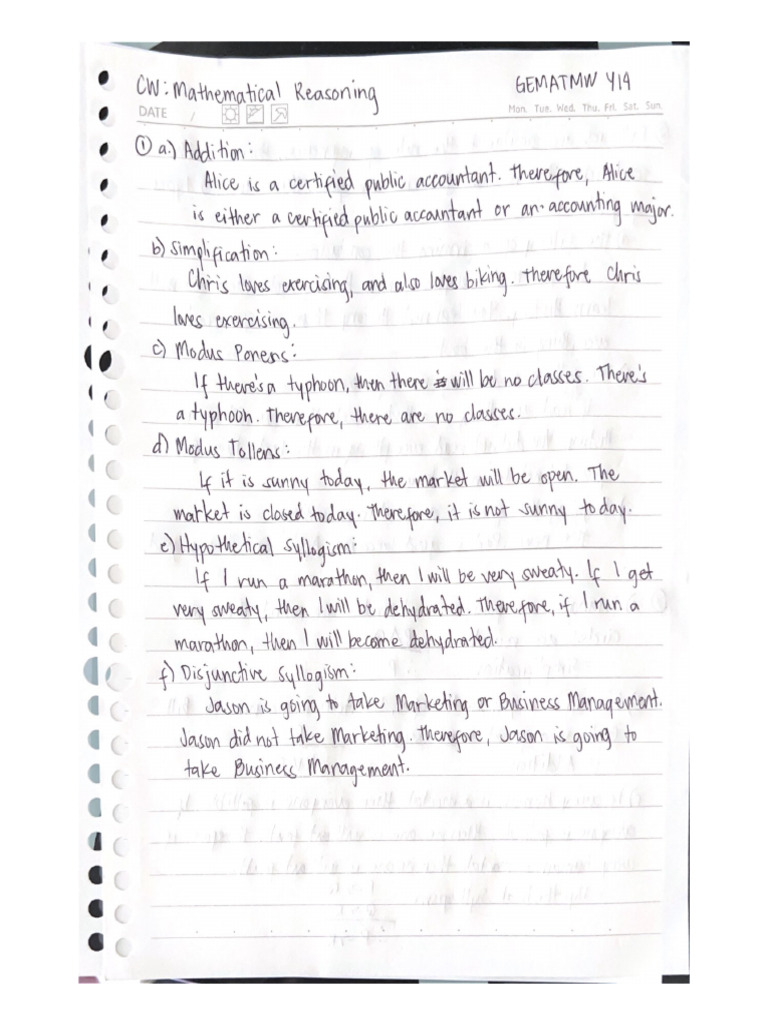 CW: Mathematical Reasoning
GEMATMW Y14
DATE
Mon. Tue. Wed. Thu. Fri. Sat. Sun.
① a.) Addition:
Alice is a certified public accountant. Therefore, Alice
is either a certified public accountant or an accounting major.
b) Simplification:
Chris loves exercising, and also loves biking. Therefore Chris
loves exercising.
c) Modus Ponens:
If there's a typhoon, then there will be no classes. There's
a typhoon. Therefore, there are no classes.
d) Modus Tollens:
If it is sunny today, the market will be open. The
market is closed today. Therefore, it is not sunny today.
e) Hypothetical Syllogism:
If I run a marathon, then I will be very sweaty. If I get
very sweaty, then I will be dehydrated. Therefore, if I run a
marathon, then I will become dehydrated.
f) Disjunctive Syllogism:
Jason is going to take Marketing or Business Management.
Jason did not take Marketing. Therefore, Jason is going to
take Business Management.